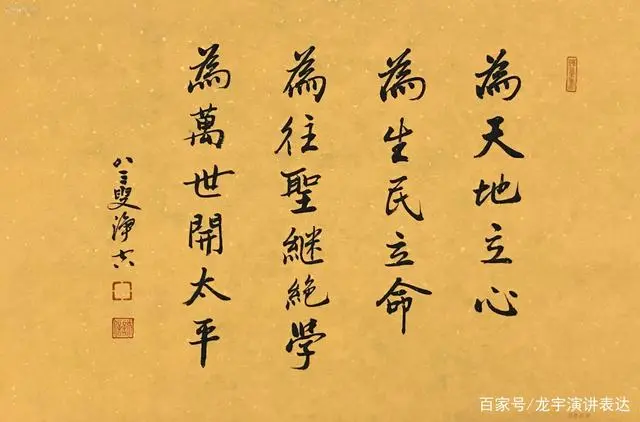 為天地立心
為生民立命
為往聖継絶學
為萬世開太平
八三叟淨空
百家号/龙宇演讲表达